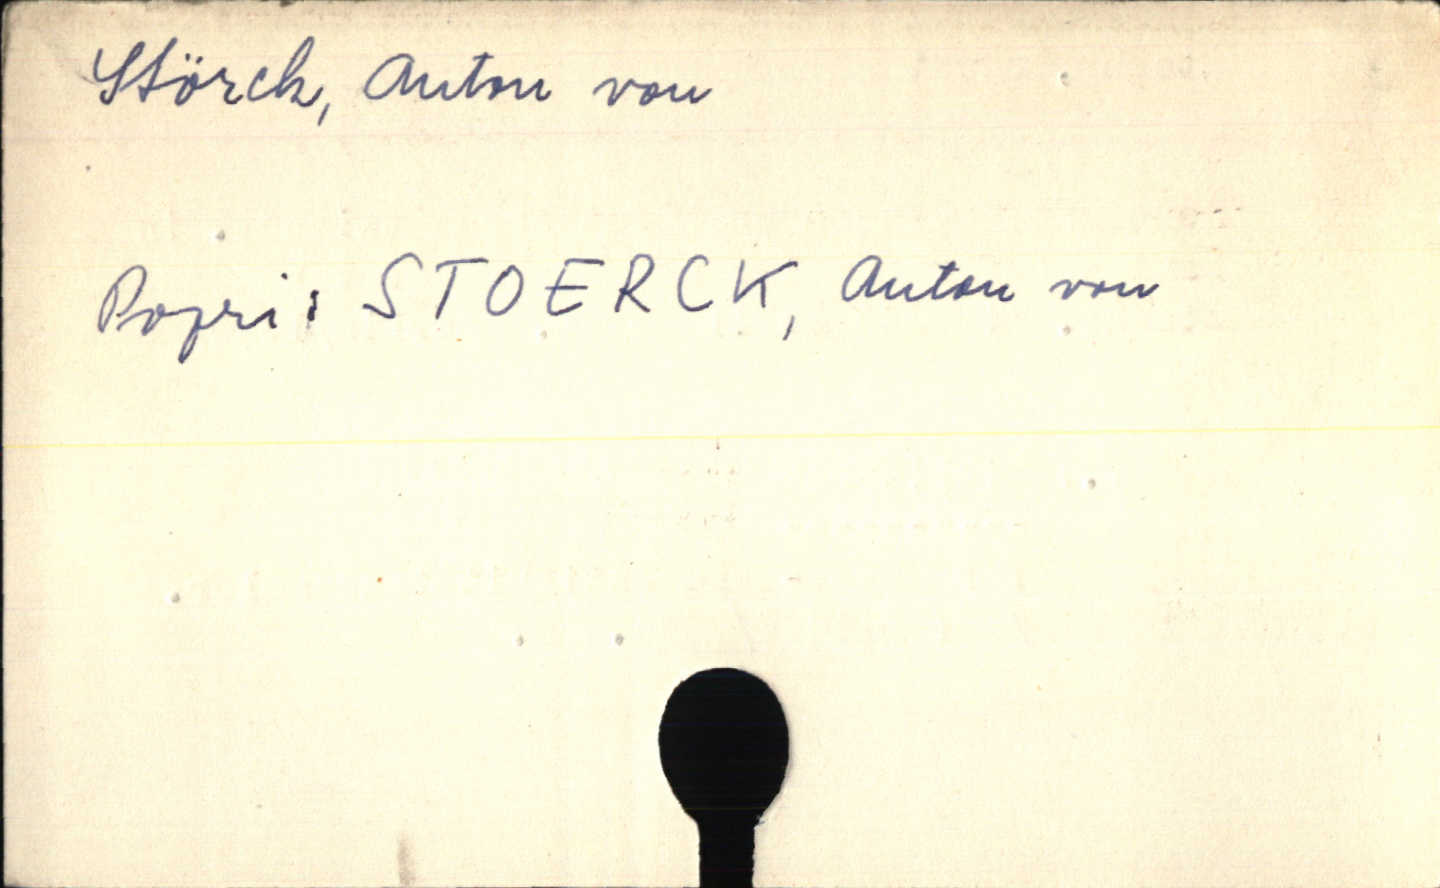 Störck, Anton von
Popri: STOERCK, Anton von